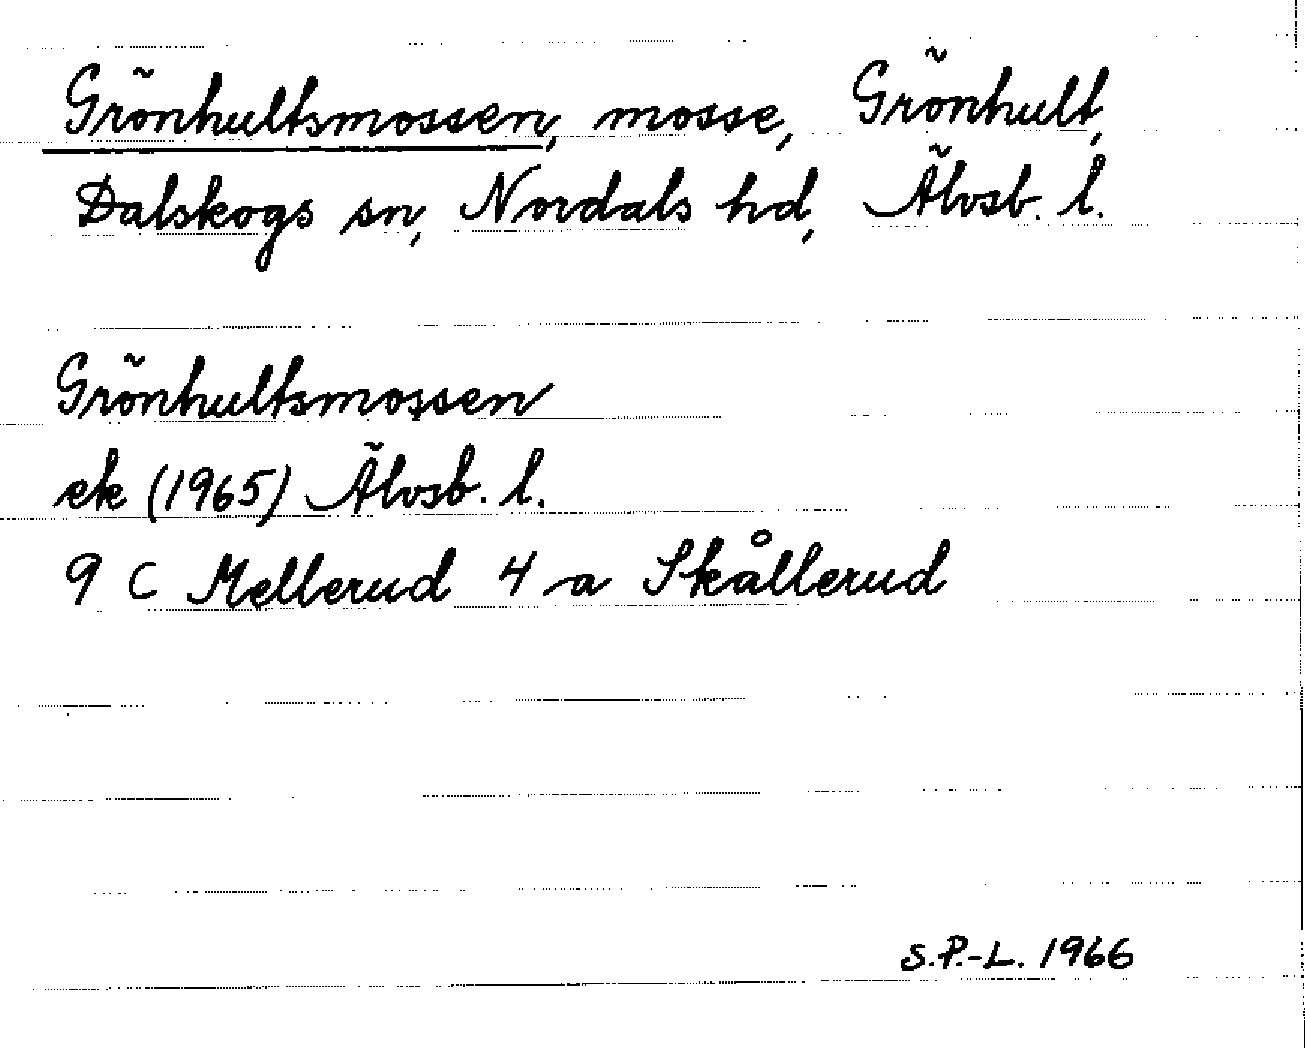 Grönhultsmossen, mosse, Grönhult,
Dalskogs sn, Nordals hd, Älvsb. l.
Grönhultsmossen
ek (1965) Älvsb. l.
9 C Mellerud 4 a Skållerud
S.P.-L. 1966